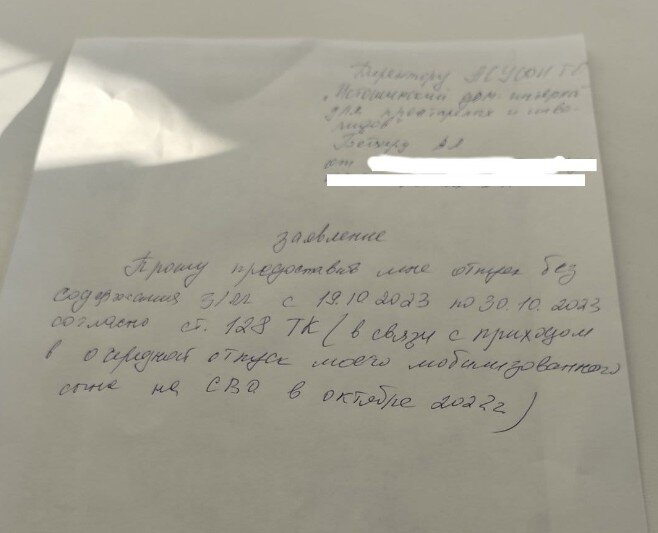 Директору АСУСОН ТО
"Ишимский дом-интернат
для престарелых и инва-
лидов"
от
заявление
Прошу предоставить мне отпуск без
содержания з/пл с 19.10.2023 по 30.10.2023
согласно ст. 128 ТК (в связи с приходом
в очередной отпуск моего мобилизованного
сына на СВО в октябре 2022г)